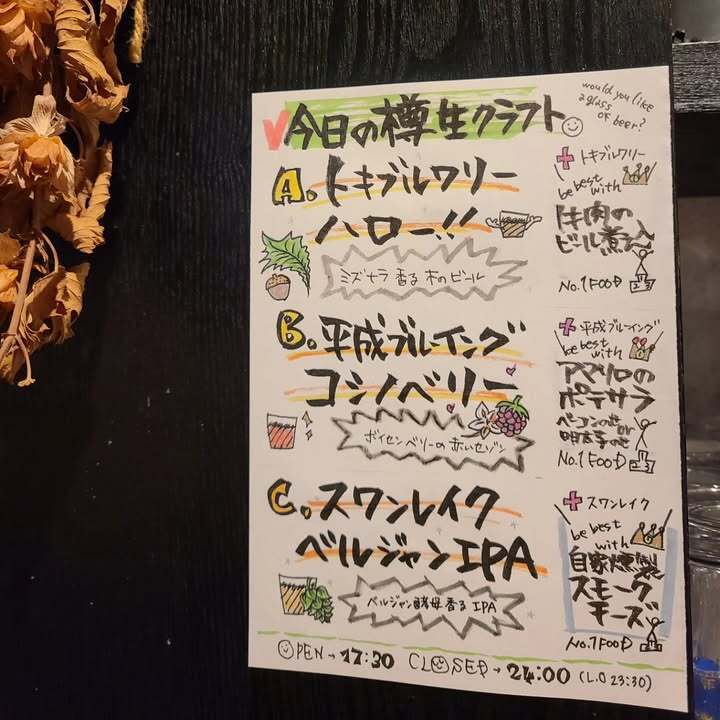 今日の樽生クラフト
would you like
a glass
of beer?
A. トキブルワリー
ハロー!!
ミズナラ香る木のビール
+ トキブルワリー
be best
with
牛肉の
ビール煮込
No.1 FOOD
B. 平成ブルーイング
コシノベリー
ボイセンベリーの赤いセゾン
+ 平成ブルーイング
be best
with
アマリロの
ポテサラ
ベーコンのせ or
明太子のせ
No.1 FOOD
C. スワンレイク
ベルジャンIPA
ベルジャン酵母香る IPA
+ スワンレイク
be best
with
自家燻製
スモーク
チーズ
No.1 FOOD
OPEN→17:30 CLOSED→24:00 (L.O 23:30)